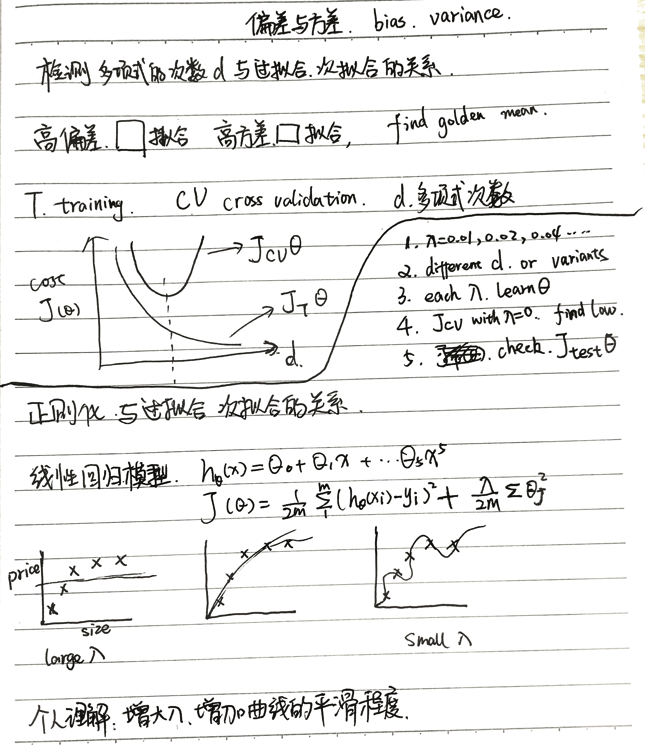 偏差与方差. bias. variance.
检测多项式的次数d与过拟合.欠拟合的关系.
高偏差.□拟合 高方差.□拟合, find golden mean.
T. training. CV cross validation. d.多项式次数
cost
J(θ)
J_CV θ
J_T θ
d.
1. λ=0.01, 0.02, 0.04 ....
2. different d. or variants
3. each λ. learn θ
4. Jcv with λ=0. find low.
5. check. J_test θ
正则化 与过拟合 欠拟合的关系.
线性回归模型. h_θ(x) = θ₀ + θ₁x + ...θ₅x⁵
J(θ) = 1/2m Σ_1^m (h_θ(xi)-yi)² + λ/2m Σθ_J²
price
size
large λ
small λ
个人理解: 增大λ, 增加曲线的平滑程度.